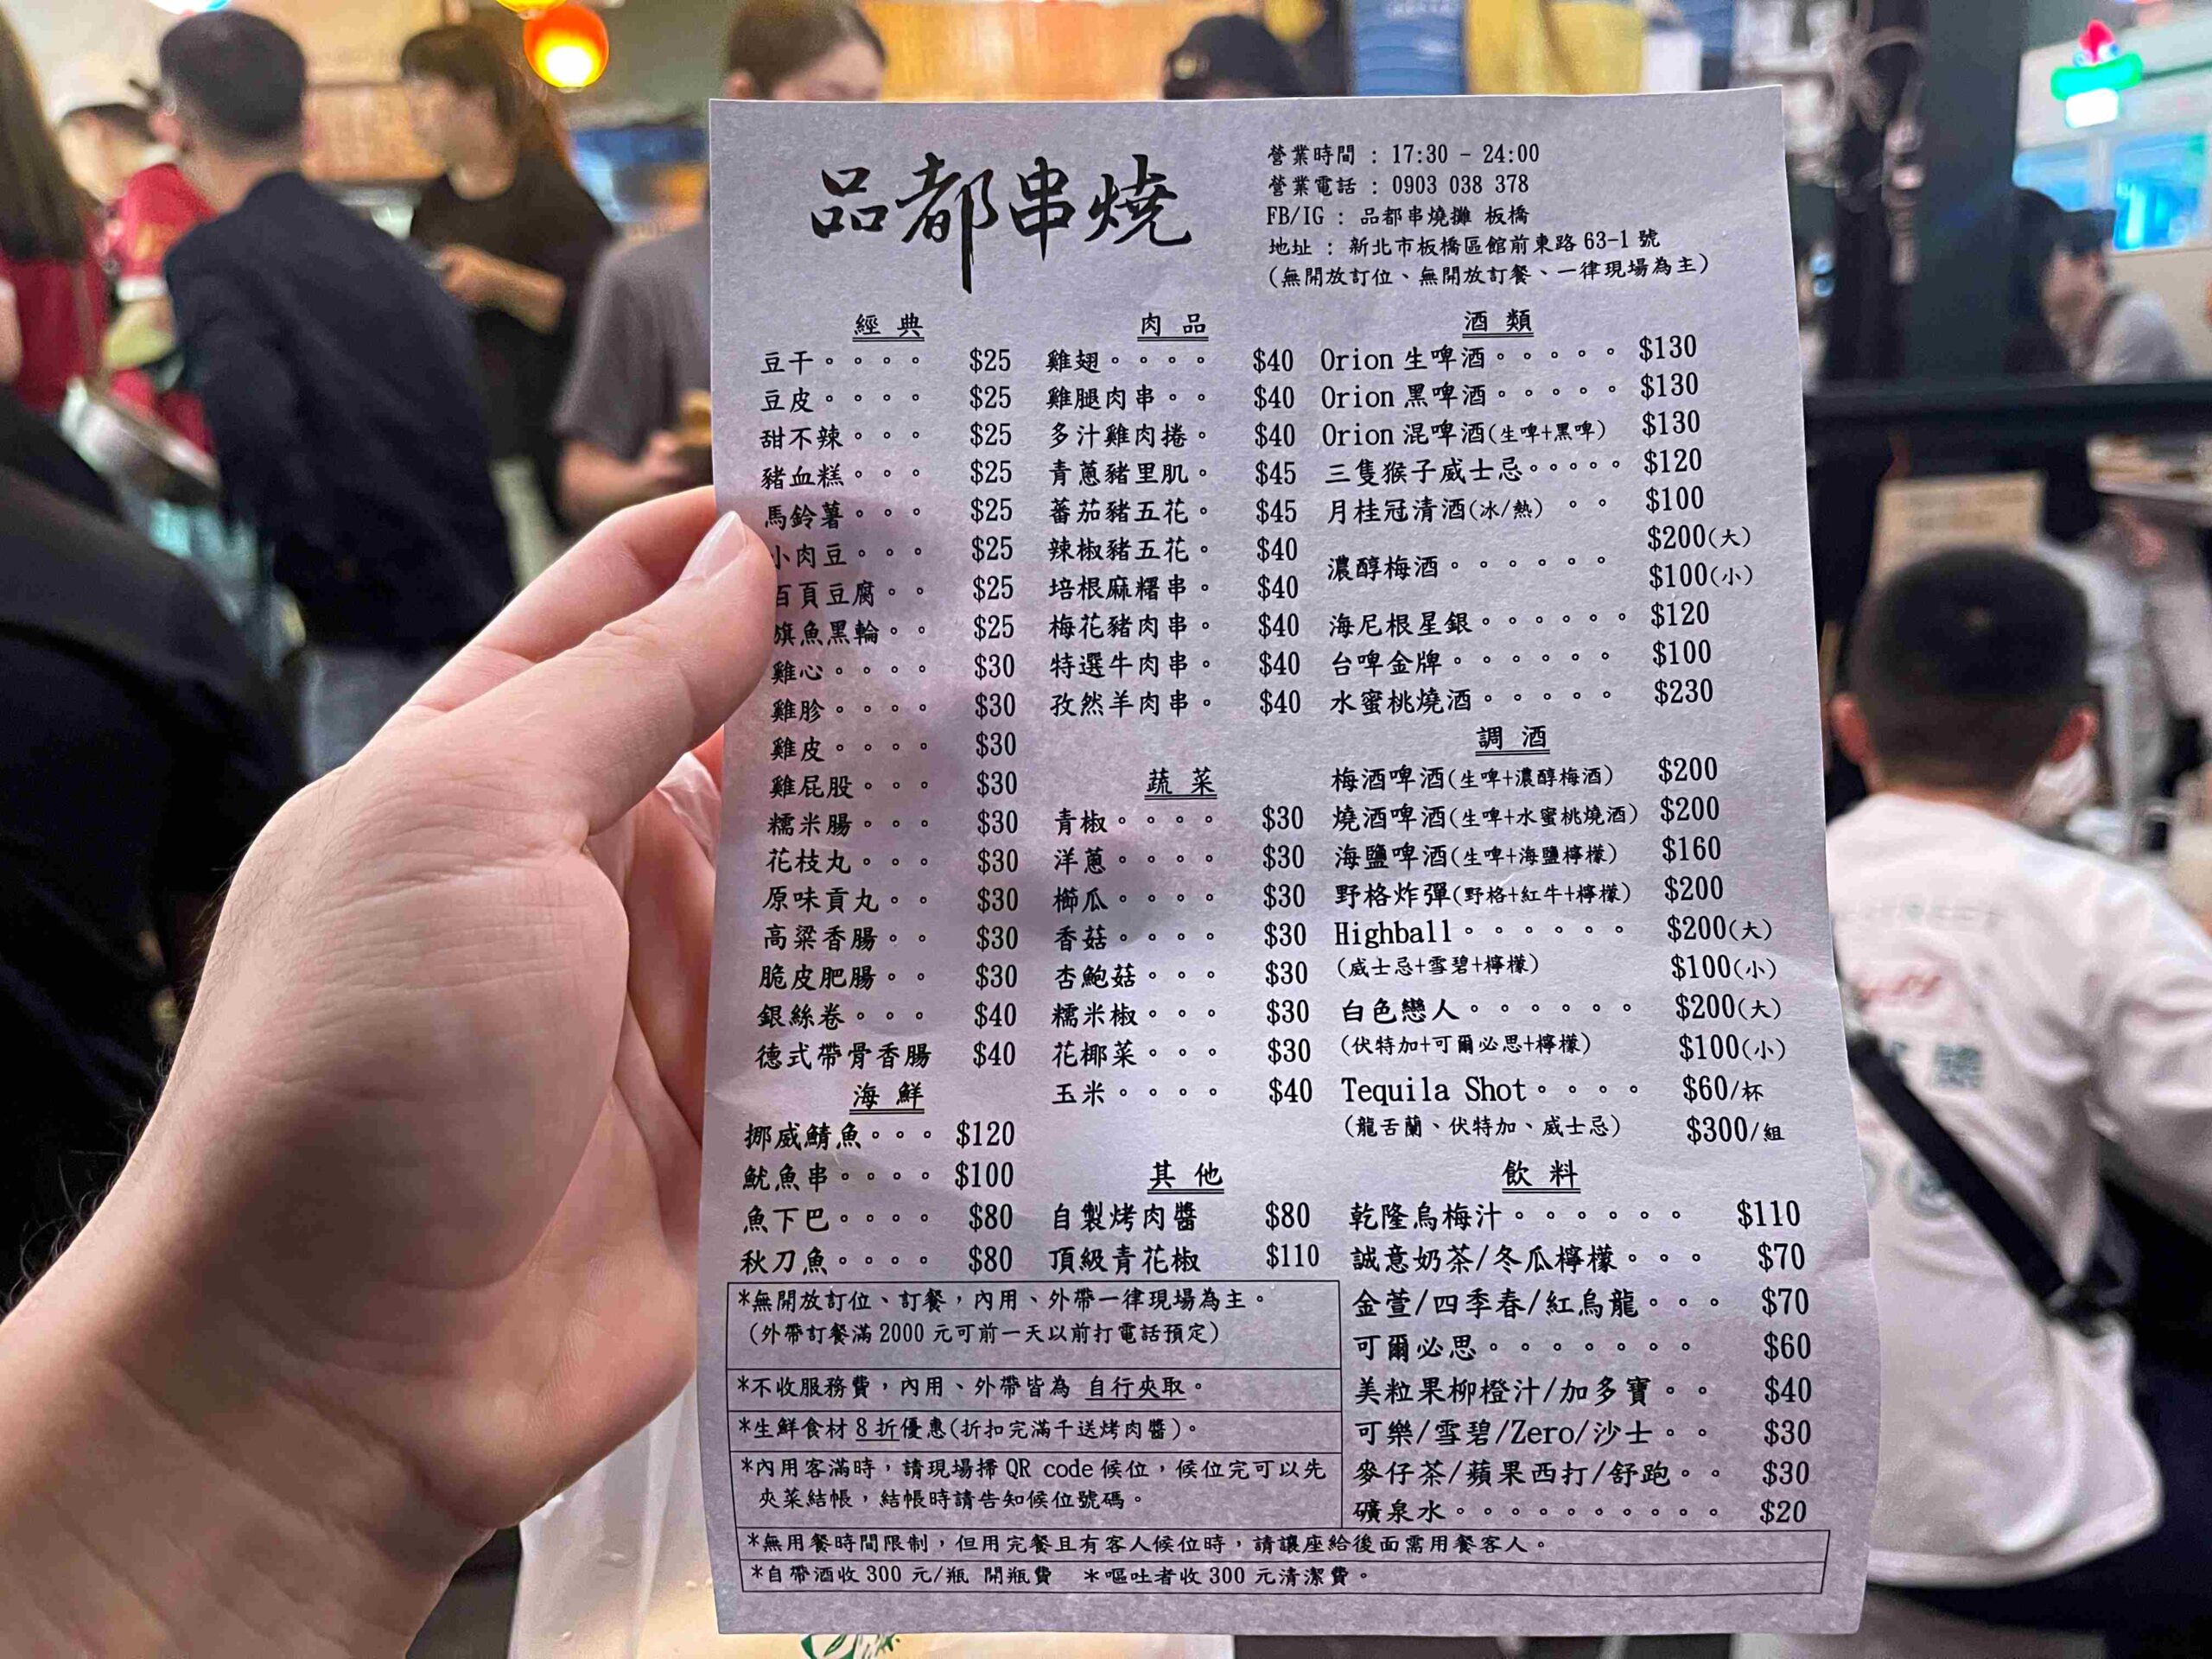 品都串燒
營業時間 : 17:30 - 24:00
營業電話 : 0903 038 378
FB/IG : 品都串燒攤 板橋
地址 : 新北市板橋區館前東路 63-1 號
(無開放訂位、無開放訂餐、一律現場為主)
經 典
豆干。。。。 $25
豆皮。。。。 $25
甜不辣。。。 $25
豬血糕。。。 $25
馬鈴薯。。。 $25
小肉豆。。。 $25
百頁豆腐。。 $25
旗魚黑輪。。 $25
雞心。。。。 $30
雞胗。。。。 $30
雞皮。。。。 $30
雞屁股。。。 $30
糯米腸。。。 $30
花枝丸。。。 $30
原味貢丸。。 $30
高粱香腸。。 $30
脆皮肥腸。。 $30
銀絲卷。。。 $40
德式帶骨香腸 $40
海 鮮
挪威鯖魚。。。 $120
魷魚串。。。。 $100
魚下巴。。。。 $80
秋刀魚。。。。 $80
肉 品
雞翅。。。。 $40
雞腿肉串。。 $40
多汁雞肉捲。 $40
青蔥豬里肌。 $45
蕃茄豬五花。 $45
辣椒豬五花。 $40
培根麻糬串。 $40
梅花豬肉串。 $40
特選牛肉串。 $40
孜然羊肉串。 $40
蔬 菜
青椒。。。。 $30
洋蔥。。。。 $30
櫛瓜。。。。 $30
香菇。。。。 $30
杏鮑菇。。。 $30
糯米椒。。。 $30
花椰菜。。。 $30
玉米。。。。 $40
其 他
自製烤肉醬 $80
頂級青花椒 $110
酒 類
Orion 生啤酒。。。。。 $130
Orion 黑啤酒。。。。。 $130
Orion 混啤酒(生啤+黑啤) $130
三隻猴子威士忌。。。。。 $120
月桂冠清酒(冰/熱) 。。 $100
濃醇梅酒。。。。。。 $200(大)
$100(小)
海尼根星銀。。。。。。 $120
台啤金牌。。。。。。 $100
水蜜桃燒酒。。。。。 $230
調 酒
梅酒啤酒(生啤+濃醇梅酒) $200
燒酒啤酒(生啤+水蜜桃燒酒) $200
海鹽啤酒(生啤+海鹽檸檬) $160
野格炸彈(野格+紅牛+檸檬) $200
Highball。。。。。。 $200(大)
(威士忌+雪碧+檸檬) $100(小)
白色戀人。。。。。。 $200(大)
(伏特加+可爾必思+檸檬) $100(小)
Tequila Shot。。。。 $60/杯
(龍舌蘭、伏特加、威士忌) $300/組
飲 料
乾隆烏梅汁。。。。。。 $110
誠意奶茶/冬瓜檸檬。。。 $70
金萱/四季春/紅烏龍。。。 $70
可爾必思。。。。。。。 $60
美粒果柳橙汁/加多寶。。 $40
可樂/雪碧/Zero/沙士。。 $30
麥仔茶/蘋果西打/舒跑。。 $30
礦泉水。。。。。。。。。。 $20
*無開放訂位、訂餐，內用、外帶一律現場為主。
(外帶訂餐滿 2000 元可前一天以前打電話預定)
*不收服務費，內用、外帶皆為 自行夾取。
*生鮮食材 8 折優惠(折扣完滿千送烤肉醬)。
*內用客滿時，請現場掃 QR code 候位，候位完可以先
夾菜結帳，結帳時請告知候位號碼。
*無用餐時間限制，但用完餐且有客人候位時，請讓座給後面需用餐客人。
*自帶酒收 300 元/瓶 開瓶費 *嘔吐者收 300 元清潔費。